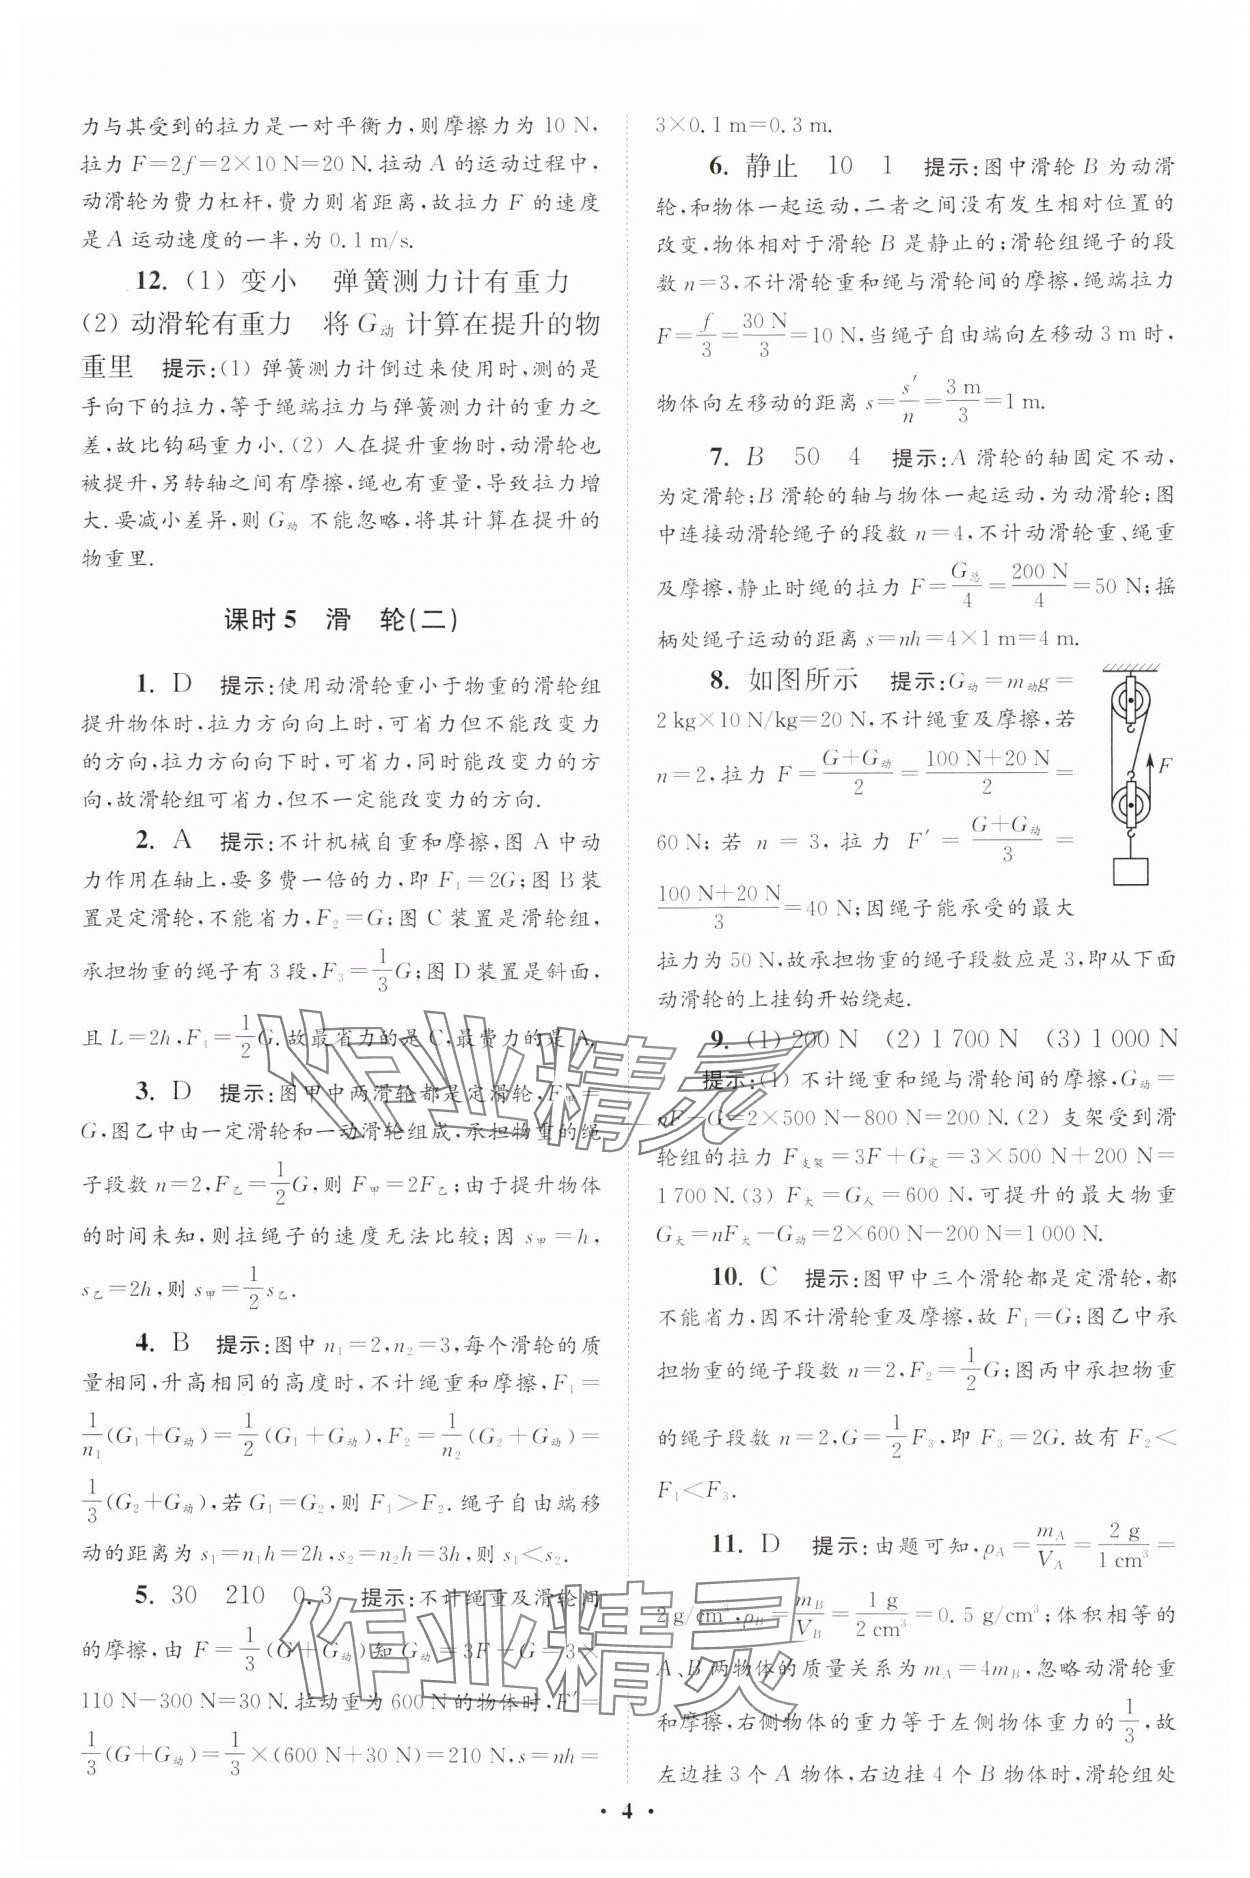 力与其受到的拉力是一对平衡力,则摩擦力为 10 N,
拉力 F=2f=2×10 N=20 N.拉动 A 的运动过程中,
动滑轮为费力杠杆,费力则省距离,故拉力 F 的速度
是 A 运动速度的一半,为 0.1 m/s.
12. (1) 变小 弹簧测力计有重力
(2) 动滑轮有重力 将 G动 计算在提升的物
重里 提示:(1) 弹簧测力计倒过来使用时,测的是
手向下的拉力,等于绳端拉力与弹簧测力计的重力之
差,故比钩码重力小.(2) 人在提升重物时,动滑轮也
被提升,另转轴之间有摩擦,绳也有重量,导致拉力增
大.要减小差异,则 G动 不能忽略,将其计算在提升的
物重里.
课时 5 滑 轮(二)
1. D 提示:使用动滑轮重小于物重的滑轮组
提升物体时,拉力方向向上时,可省力但不能改变力
的方向,拉力方向向下时,可省力,同时能改变力的方
向,故滑轮组可省力,但不一定能改变力的方向.
2. A 提示:不计机械自重和摩擦,图 A 中动
力作用在轴上,要多费一倍的力,即 F₁=2G;图 B 装
置是定滑轮,不能省力,F₂=G;图 C 装置是滑轮组,
承担物重的绳子有 3 段,F₃=1/3G;图 D 装置是斜面,
且 L=2h,F₄=1/2G.故最省力的是 C,最费力的是 A.
3. D 提示:图甲中两滑轮都是定滑轮,F甲=
G,图乙中由一定滑轮和一动滑轮组成,承担物重的绳
子段数 n=2,F乙=1/2G,则 F甲=2F乙;由于提升物体
的时间未知,则拉绳子的速度无法比较;因 s甲=h,
s乙=2h,则 s甲=1/2s乙.
4. B 提示:图中 n₁=2,n₂=3,每个滑轮的质
量相同,升高相同的高度时,不计绳重和摩擦,F₁=
1/n₁(G₁+G动)=1/2(G₁+G动),F₂=1/n₂(G₂+G动)=
1/3(G₂+G动),若 G₁=G₂,则 F₁>F₂.绳子自由端移
动的距离为 s₁=n₁h=2h,s₂=n₂h=3h,则 s₁<s₂.
5. 30 210 0.3 提示:不计绳重及滑轮间
的摩擦,由 F=1/3(G+G动)知 G动=3F-G=3×
110 N-300 N=30 N.拉动重为 600 N 的物体时,F′=
1/3(G+G动)=1/3×(600 N+30 N)=210 N,s=nh=
3×0.1 m=0.3 m.
6. 静止 10 1 提示:图中滑轮 B 为动滑
轮,和物体一起运动,二者之间没有发生相对位置的
改变,物体相对于滑轮 B 是静止的;滑轮组绳子的段
数 n=3,不计滑轮重和绳与滑轮间的摩擦,绳端拉力
F=f/3=30 N/3=10 N,当绳子自由端向左移动 3 m 时,
物体向左移动的距离 s=s′/n=3 m/3=1 m.
7. B 50 4 提示:A 滑轮的轴固定不动,
为定滑轮;B 滑轮的轴与物体一起运动,为动滑轮;图
中连接动滑轮绳子的段数 n=4,不计动滑轮重、绳重
及摩擦,静止时绳的拉力 F=G总/4=200 N/4=50 N;摇
柄处绳子运动的距离 s=nh=4×1 m=4 m.
8. 如图所示 提示:G动=m动g=
2 kg×10 N/kg=20 N,不计绳重及摩擦,若
n=2,拉力 F=(G+G动)/2=(100 N+20 N)/2=
60 N;若 n=3,拉力 F′=(G+G动)/3=
(100 N+20 N)/3=40 N;因绳子能承受的最大
F
拉力为 50 N,故承担物重的绳子段数应是 3,即从下面
动滑轮的上挂钩开始绕起.
9. (1) 200 N (2) 1 700 N (3) 1 000 N
提示:(1) 不计绳重和绳与滑轮间的摩擦,G动=
nF-G=2×500 N-800 N=200 N.(2) 支架受到滑
轮组的拉力 F支架=3F+G定=3×500 N+200 N=
1 700 N.(3) F大=G人=600 N,可提升的最大物重
G大=nF大-G动=2×600 N-200 N=1 000 N.
10. C 提示:图甲中三个滑轮都是定滑轮,都
不能省力,因不计滑轮重及摩擦,故 F₁=G;图乙中承
担物重的绳子段数 n=2,F₂=1/2G;图丙中承担物重
的绳子段数 n=2,G=1/2F₃,即 F₃=2G.故有 F₂<
F₁<F₃.
11. D 提示:由题可知,ρA=mA/VA=2 g/1 cm³=
2 g/cm³,ρB=mB/VB=1 g/2 cm³=0.5 g/cm³;体积相等的
A、B 两物体的质量关系为 mA=4mB,忽略动滑轮重
和摩擦,右侧物体的重力等于左侧物体重力的1/3,故
左边挂 3 个 A 物体,右边挂 4 个 B 物体时,滑轮组处
· 4 ·
作业精灵
作业精灵